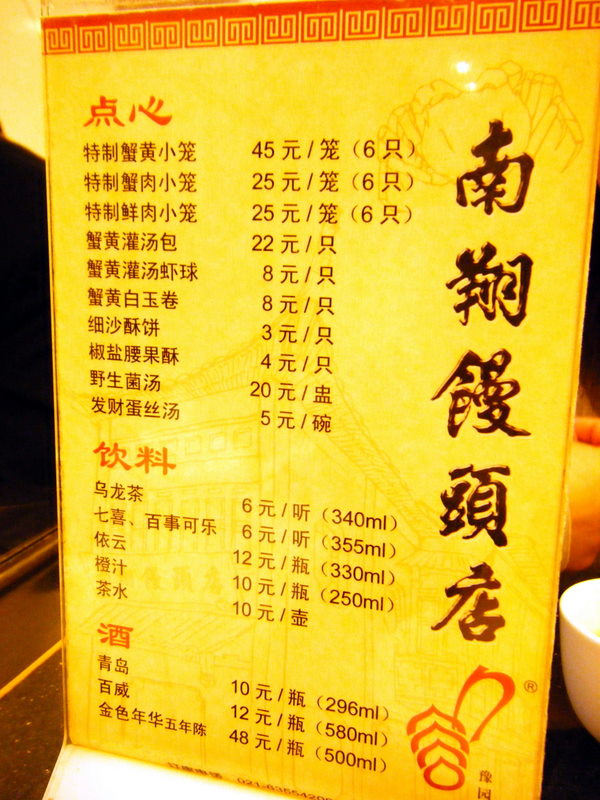 点心
特制蟹黄小笼 45 元 / 笼（6 只）
特制蟹肉小笼 25 元 / 笼（6 只）
特制鲜肉小笼 25 元 / 笼（6 只）
蟹黄灌汤包 22 元 / 只
蟹黄灌汤虾球 8 元 / 只
蟹黄白玉卷 8 元 / 只
细沙酥饼 3 元 / 只
椒盐腰果酥 4 元 / 只
野生菌汤 20 元 / 盅
发财蛋丝汤 5 元 / 碗
饮料
乌龙茶 6 元 / 听（340ml）
七喜、百事可乐 6 元 / 听（355ml）
依云 12 元 / 瓶（330ml）
橙汁 10 元 / 瓶（250ml）
茶水 10 元 / 壶
酒
青岛 10 元 / 瓶（296ml）
百威 12 元 / 瓶（580ml）
金色年华五年陈 48 元 / 瓶（500ml）
南翔饅頭店
®
豫园